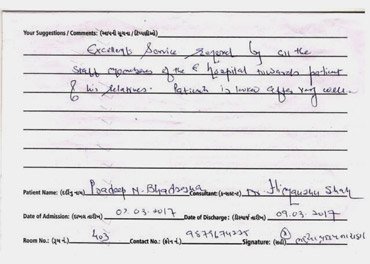 Your Suggestions / Comments: (આપની સૂચના / ટિપ્પણીઓ)
Excellent Service by all the
Staff members of the hospital towards patient
& his relatives. Patient is looked after very well.
Patient Name: (દર્દીનું નામ) Pradeep N. Consultant: (ડૉક્ટર) Dr. Himanshu Shah
Date of Admission: (દાખલ તારીખ) 07.03.2017 Date of Discharge: (ડિસ્ચાર્જ તારીખ) 09.03.2017
Room No.: (રૂમ નં.) 403 Contact No.: (ફોન નં.) Signature: (સહી)